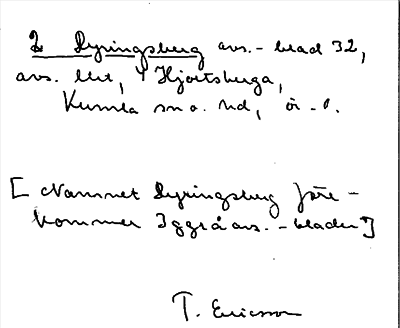 2 Lyringsberg avs.-blad 32,
avs. till, 4 Hjortsberga,
Kumla sn o. hd, ör. l.
[Namnet Lyringsberg före-
kommer 3 ggr å avs.-bladen]
T. Ericsson